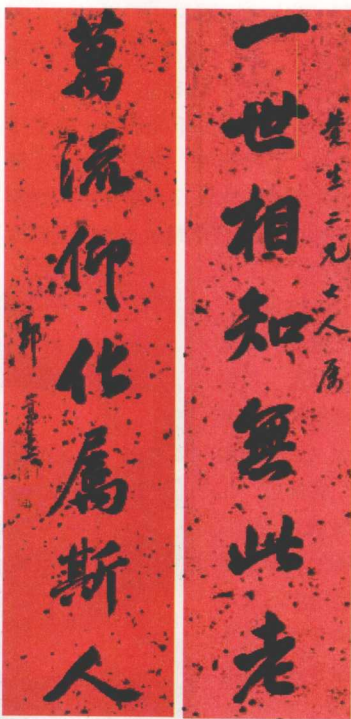 一世相知無此老
二兄大人屬
萬流仰化屬斯人
郭嵩燾